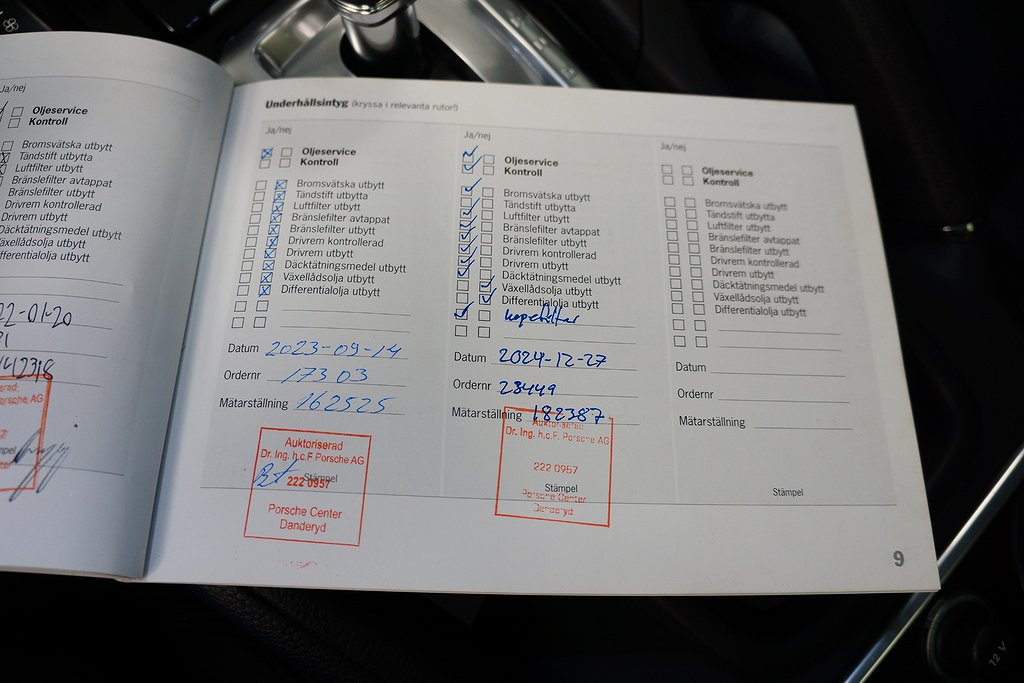 Ja/nej
Oljeservice
Kontroll
Bromsvätska utbytt
Tändstift utbytta
Luftfilter utbytt
Bränslefilter avtappat
Bränslefilter utbytt
Drivrem kontrollerad
Drivrem utbytt
Däcktätningsmedel utbytt
Växellådsolja utbytt
fferentialolja utbytt
22-01-20
Porsche AG
Underhållsintyg (kryssa i relevanta rutor!)
Ja/nej
Oljeservice
Kontroll
Bromsvätska utbytt
Tändstift utbytta
Luftfilter utbytt
Bränslefilter avtappat
Bränslefilter utbytt
Drivrem kontrollerad
Drivrem utbytt
Däcktätningsmedel utbytt
Växellådsolja utbytt
Differentialolja utbytt
Datum 2023-09-14
Ordernr 17303
Mätarställning 162525
Auktoriserad
Dr. Ing. h.c.F Porsche AG
Stämpel
222 0957
Porsche Center
Danderyd
Ja/nej
Oljeservice
Kontroll
Bromsvätska utbytt
Tändstift utbytta
Luftfilter utbytt
Bränslefilter avtappat
Bränslefilter utbytt
Drivrem kontrollerad
Drivrem utbytt
Däcktätningsmedel utbytt
Växellådsolja utbytt
Differentialolja utbytt
Datum 2024-12-27
Ordernr 23449
Mätarställning 182387
Auktoriserad
Dr. Ing. h.c.F. Porsche AG
222 0957
Stämpel
Porsche Center
Danderyd
Ja/nej
Oljeservice
Kontroll
Bromsvätska utbytt
Tändstift utbytta
Luftfilter utbytt
Bränslefilter avtappat
Bränslefilter utbytt
Drivrem kontrollerad
Drivrem utbytt
Däcktätningsmedel utbytt
Växellådsolja utbytt
Differentialolja utbytt
Datum
Ordernr
Mätarställning
Stämpel
9
12 V